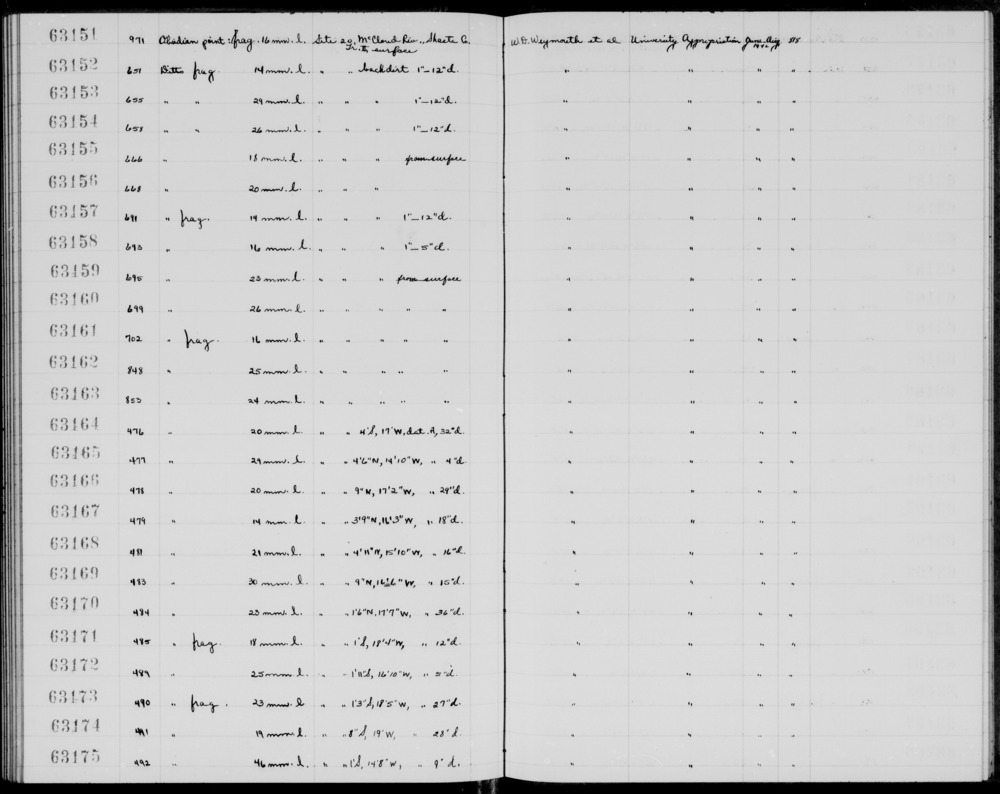 63151 971 Obsidian point: frag. 16 mm. l. Site 20, McCloud Riv., Shasta C. W.D. Weymouth et al University Appropriation June-Aug 515
surface
63152 651 Ditto frag 14 mm. l. " " backdirt 1"-12"d. " " " "
63153 655 " " 29 mm. l. " " " 1"-12"d. " " " "
63154 658 " " 26 mm. l. " " " 1"-12"d. " " " "
63155 666 " 18 mm. l. " " " from surface " " " "
63156 668 " 20 mm. l. " " " " " " "
63157 691 " frag. 14 mm. l. " " " 1"-12"d. " " " "
63158 693 " 16 mm. l. " " " 1"-5"d. " " " "
63159 695 " 23 mm. l. " " " from surface " " " "
63160 699 " 26 mm. l. " " " " " " " "
63161 702 " frag. 16 mm. l. " " " " " " " "
63162 848 " 25 mm. l. " " " " " " " " "
63163 853 " 24 mm. l. " " " " " " " " "
63164 476 " 20 mm. l. " " 4'S, 17'W, dat. A, 32"d. " " " "
63165 477 " 29 mm. l. " " 4'6"N, 14'10"W, " 4"d. " " " "
63166 478 " 20 mm. l. " " 9"N, 17'2"W, " 29"d. " " " "
63167 479 " 14 mm. l. " " 3'9"N, 16'3"W, " 18"d. " " " "
63168 481 " 21 mm. l. " " 4'11"N, 15'10"W, " 16"d. " " " "
63169 483 " 30 mm. l. " " 9"N, 16'6"W, " 15"d. " " " "
63170 484 " 23 mm. l. " " 1'6"N, 17'7"W, " 36"d. " " " "
63171 485 " frag. 18 mm. l. " " 1'S, 18'4"W, " 12"d. " " " "
63172 489 " 25 mm. l. " " 1'11"S, 16'10"W, " 5"d. " " " "
63173 490 " frag. 23 mm. l. " " 1'3"S, 18'5"W, " 27"d. " " " "
63174 491 " 19 mm. l. " " 8"S, 19'W, " 28"d. " " " "
63175 492 " 46 mm. l. " " 1'S, 14'8"W, " 9"d. " " " "